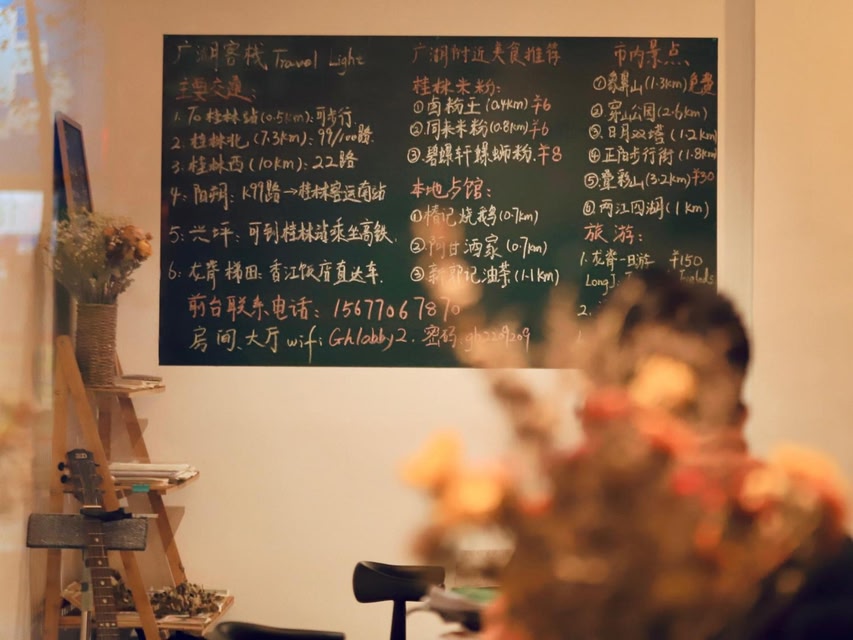 广湖客栈 Travel Light
主要交通:
1. To 桂林站(0.5km):可步行
2. 桂林北(7.3km):99/100路
3. 桂林西(10km):22路
4: 阳朔: K99路→桂林客运南站
5: 兴坪: 可到桂林站乘坐高铁.
6: 龙脊梯田: 香江饭店直达车.
前台联系电话: 15677067870
房间、大厅 wifi: Ghlobby2. 密码:
广湖附近美食推荐
桂林米粉:
①卤粉王(0.4km)¥6
②同来米粉(0.8km)¥6
③碧螺轩螺蛳粉:¥8
本地点馆:
①椿记烧鹅(0.7km)
②阿甘酒家(0.7km)
③新郭记油茶(1.1km)
市内景点
①象鼻山(1.3km)免费
②穿山公园(2.6km)
③日月双塔(1.2km)
④正阳步行街(1.8km)
⑤叠彩山(3.2km)¥30
⑥两江四湖(1km)
旅游:
1.龙脊一日游 ¥150
Long
2.